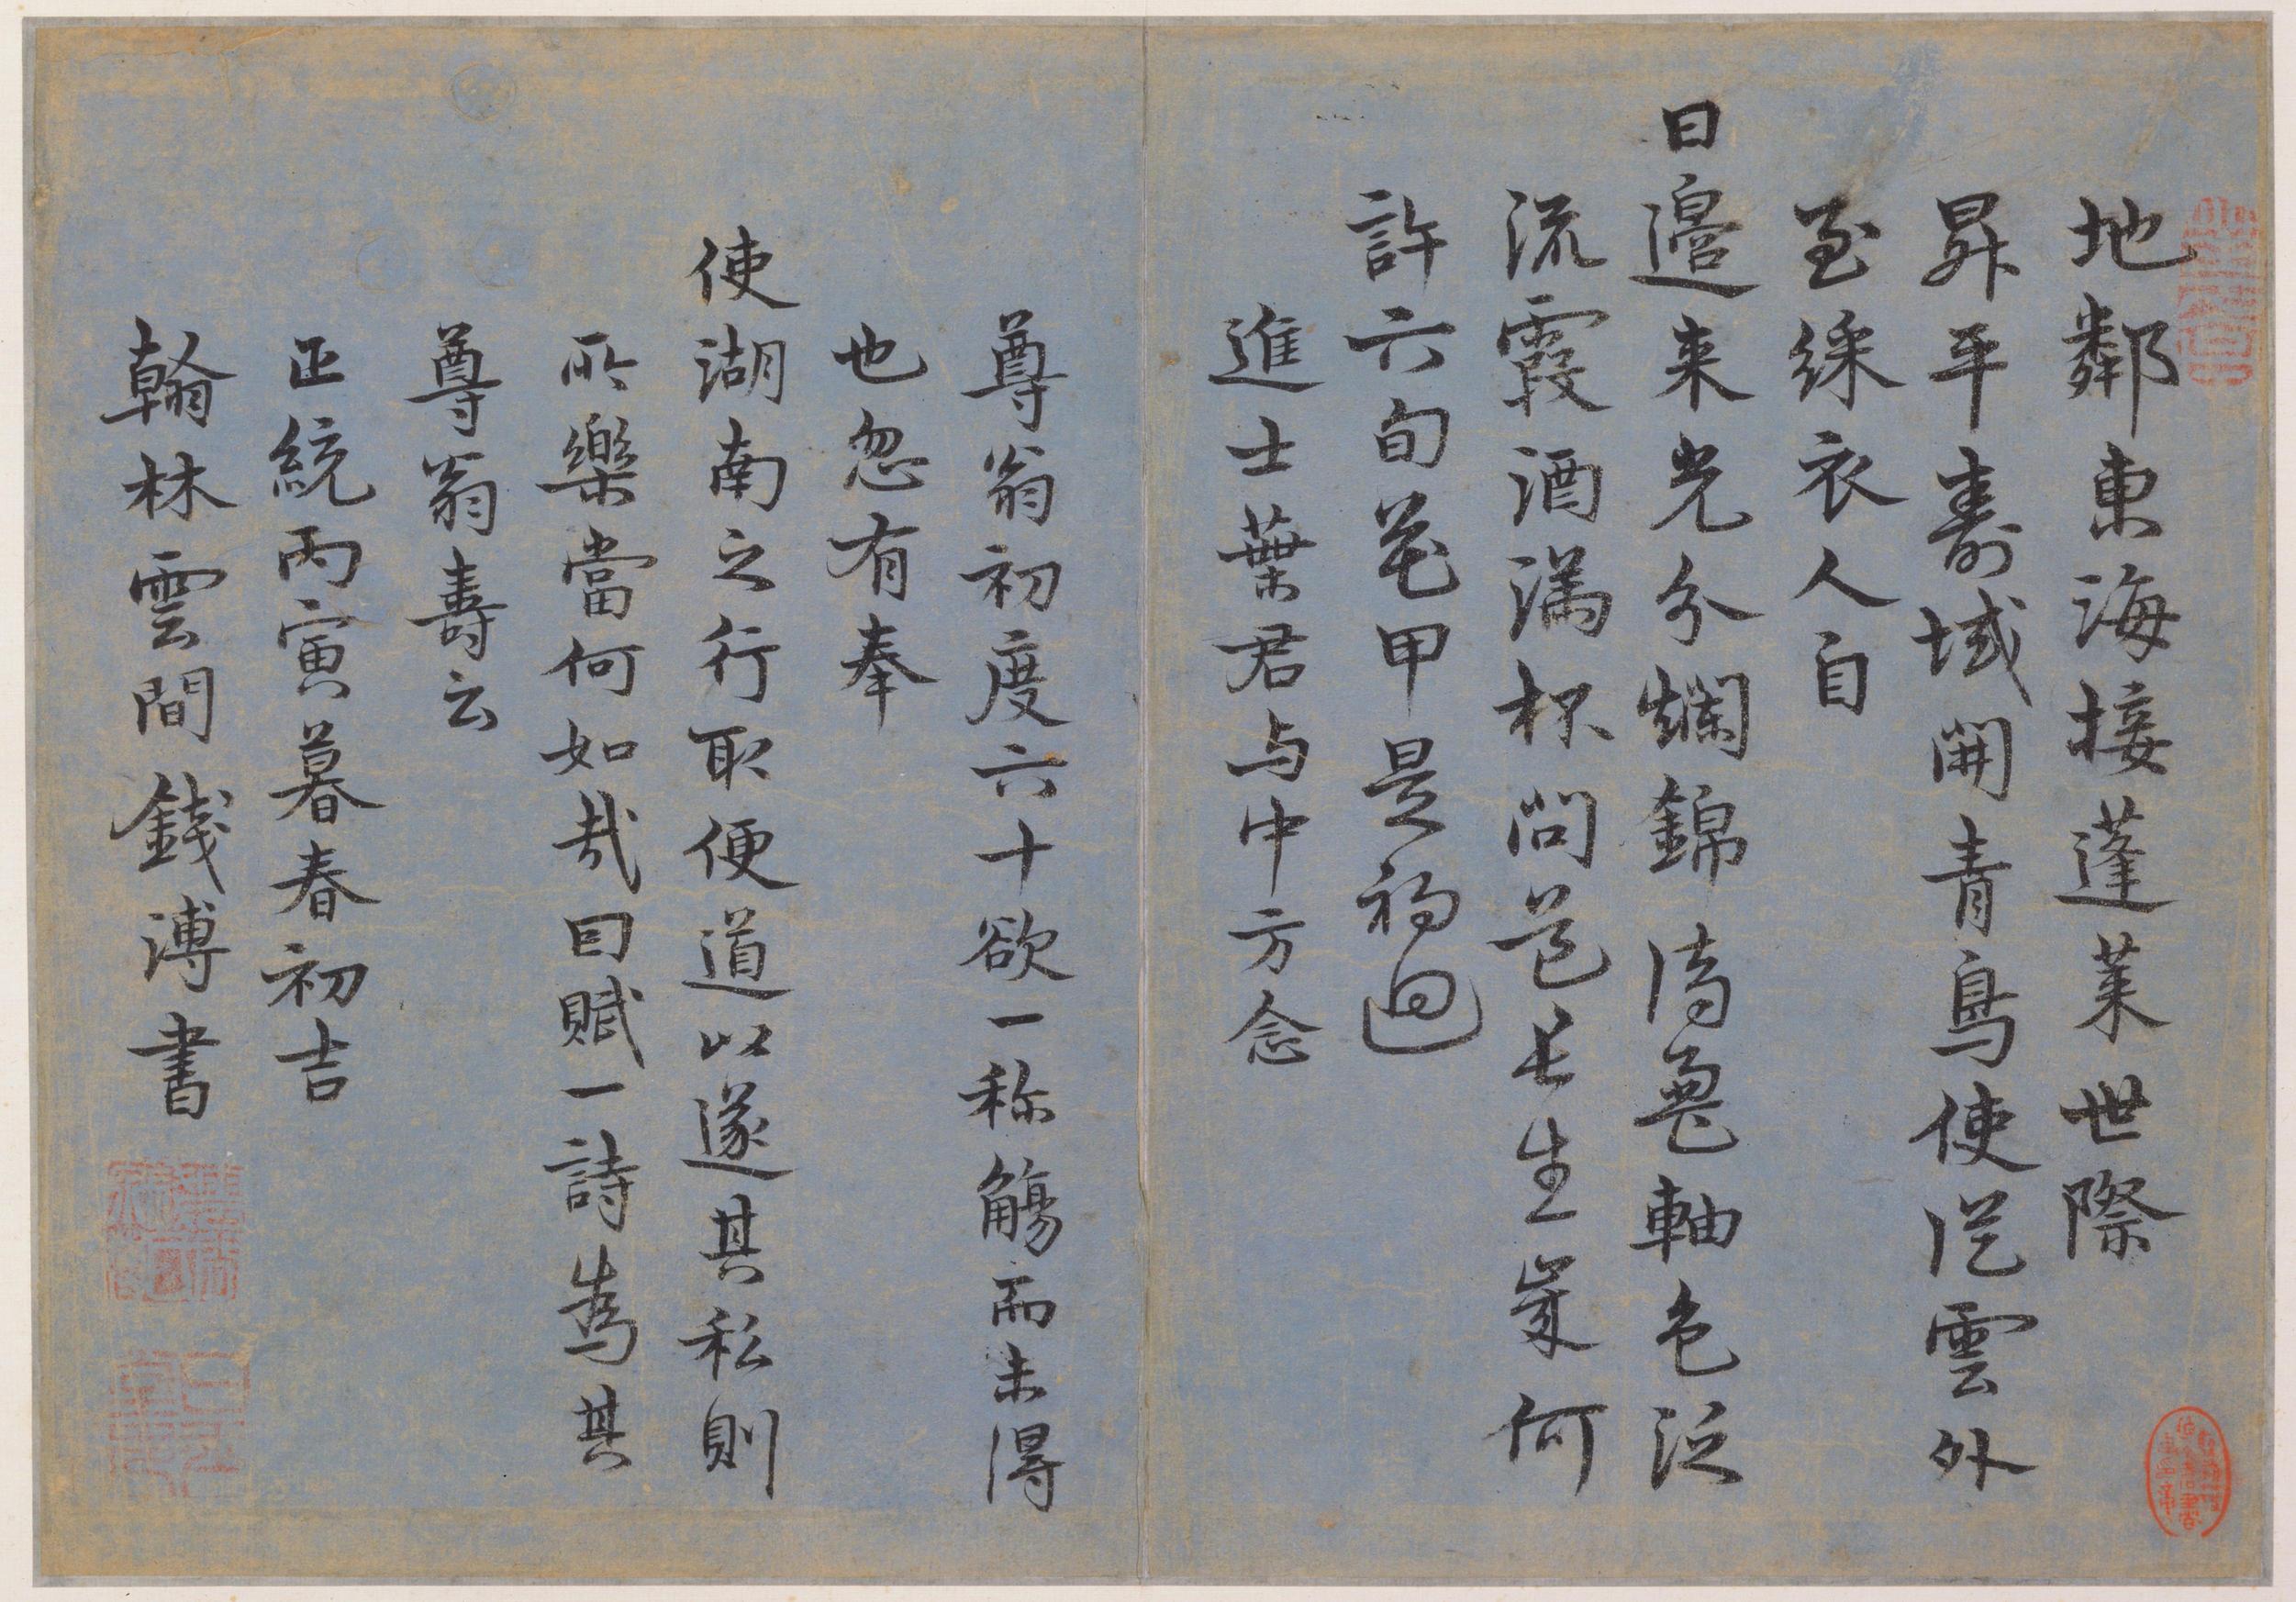 地鄰東海接蓬萊世際
昇平壽域開青鳥使從雲外
至綵衣人自
日邊来光分爛錦詩盈軸色泛
流霞酒滿杯問道長生嵗何
許六旬花甲是初迴
進士葉君与中方念
尊翁初度六十欲一称觴而未得
也忽有奉
使湖南之行取便道以遂其私則
所樂當何如哉因賦一詩為其
尊翁壽云
正統丙寅暮春初吉
翰林雲間錢溥書